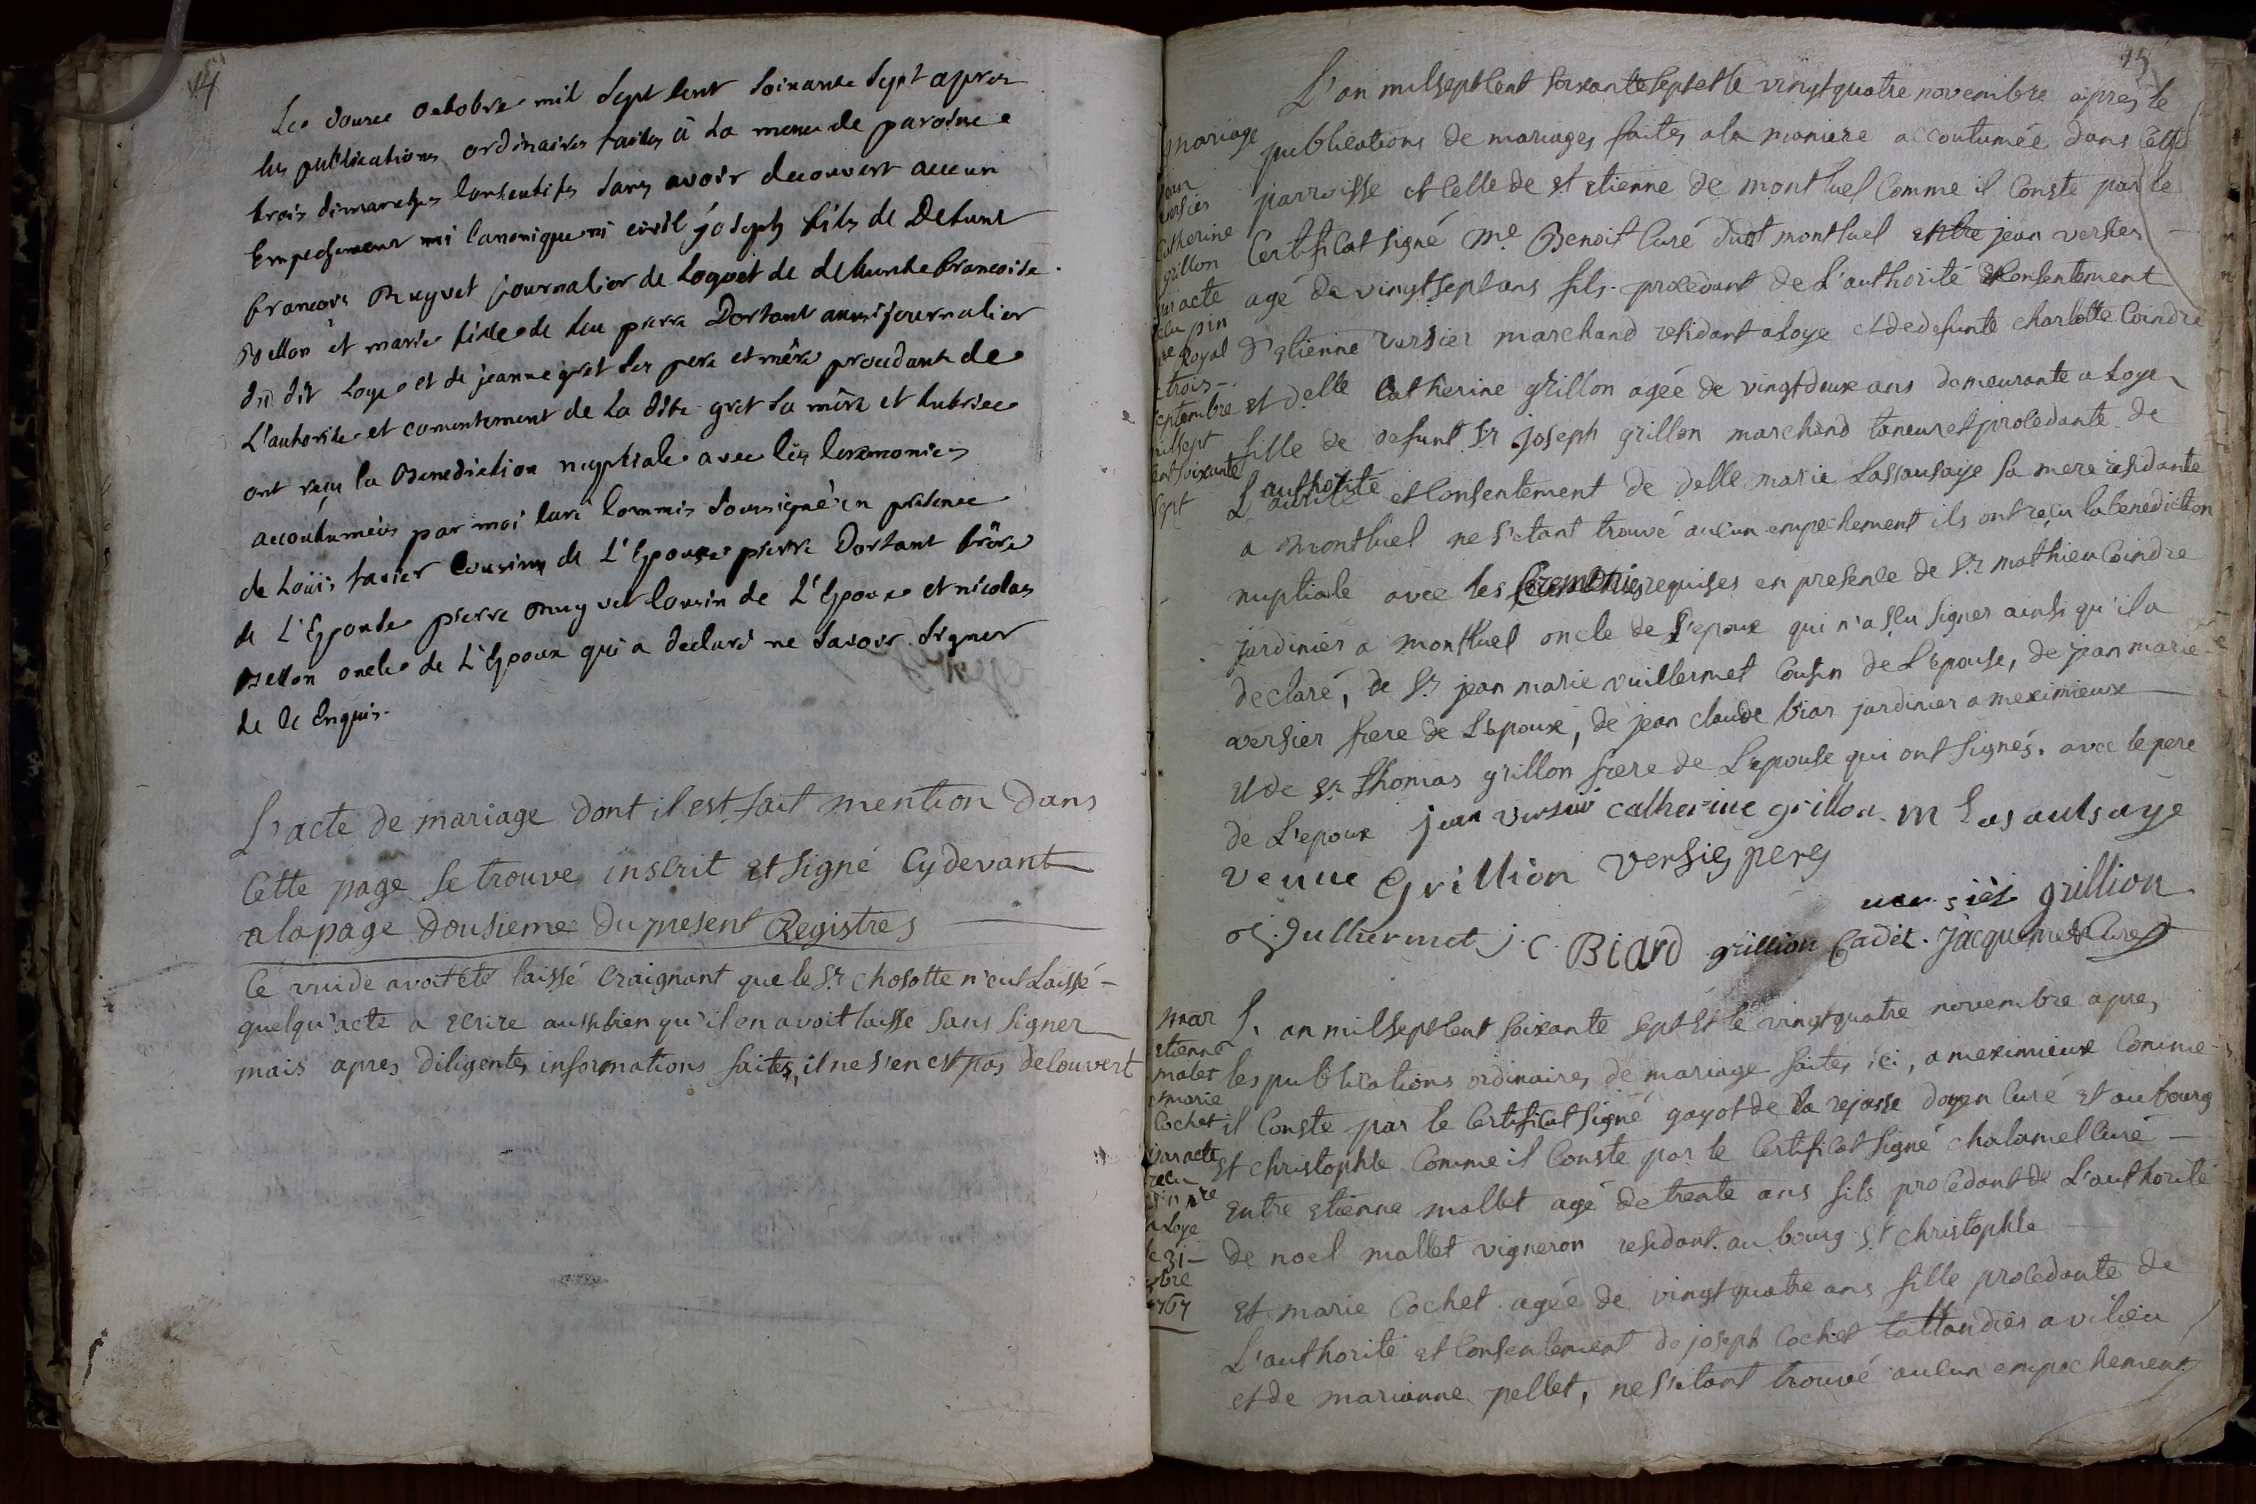 14
Le douze octobre mil sept cent soixante sept apres
les publications ordinaires faites à la messe de paroisse
trois dimanches consecutifs sans avoir decouvert aucun
Empeschement ni canonique ni civil joseph fils de Defunt
francois Muguet journalier de Loyes et de defunte francoise
Bellon et marie fille de feu pierre Dortant aussi journalier
du dit Loye et de jeanne gret ses pere et mère procedants de
L'autorité et consentement de la dite gret sa mère
ont reçu la Benediction nuptiale avec les ceremonies
accoutumées par moi curé commis soussigné en presence
de Loüis favier Cousin de L'Epouse pierre Dortant frère
de L'Epouse pierre muguet cousin de L'Epoux et nicolas
Bellon oncle de L'Epoux qui a declaré ne savoir signer
de ce Enquis.
L'acte de mariage dont il est fait mention dans
Cette page se trouve inscrit et signé Cydevant
a la page dousieme du present Registres
Ce vuide avoit été laissé craignant que le Sr. chosotte n'eut Laissé
quelqu'acte a ecrire aussi bien qu'il en avoit laissé sans signer
mais apres diligentes informations faites, il ne s'en est pas decouvert
15
L'an mil sept cent soixante sept et le vingt quatre novembre après le
publications de mariages faites a la maniere accoutumée dans Cette
parroisse et celle de st etienne de montluel Comme il Conste par le
Certificat signé Me. Benoit Curé dudt montluel entre jean versier
agé de vingt sept ans fils procedant de L'authorité et Consentement
d'etienne versier marchand residant a Loye et de defunte charlotte Coindre
et delle Catherine grillon agée de vingt deux ans demeurante a Loye
fille de defunt Sr joseph grillon marchand taneur et procedante de
L'authorité et Consentement de delle marie Lassausaye sa mere residante
a montluel ne s'etant trouvé aucun empechement ils ont reçu la benediction
nuptiale avec les Ceremonies requises en presence de Sr. mathieu Coindre
jardinier a montluel oncle de L'epoux qui n'a sçu signer ainsi qu'il a
declaré, de Sr. jean marie vuillermet Cousin de L'epouse, de jean marie
versier frere de L'epoux, de jean claude biar jardinier a meximieux
et de Sr. thomas grillon frere de L'epouse qui ont signés. avec le pere
de L'epoux jean versier catherine grillon. m Lasaulsaye
veuve Grillion versier pere
versier grillion
Jullermet j. C. BiArd grillion Cadet. jacquemet Curé
mariage
jean
versier
Catherine
grillon
par acte
reçu pin
re Royal
trois
septembre
mil sept
cent soixante
sept
L'an mil sept cent soixante sept et le vingt quatre novembre apres
les publications ordinaires de mariage faites ici, a meximieux Comme
il Conste par le Certificat signé gayot de la rejasse doyen Curé et au bourg
st christophle Comme il Conste par le Certificat signé chalamel Curé
entre etienne mallet agé de trente ans fils procedant de L'authorité
de noel mallet vigneron residant au bourg St christophle
et marie Cochet agée de vingt quatre ans fille procedante de
L'authorité et Consentement de joseph Cochet taillandier a vilieu
et de marianne pellet, ne s'etant trouvé aucun empechement
mar
etienne
malet
marie
Cochet
par acte
reçu
a Loye
le 31
1767